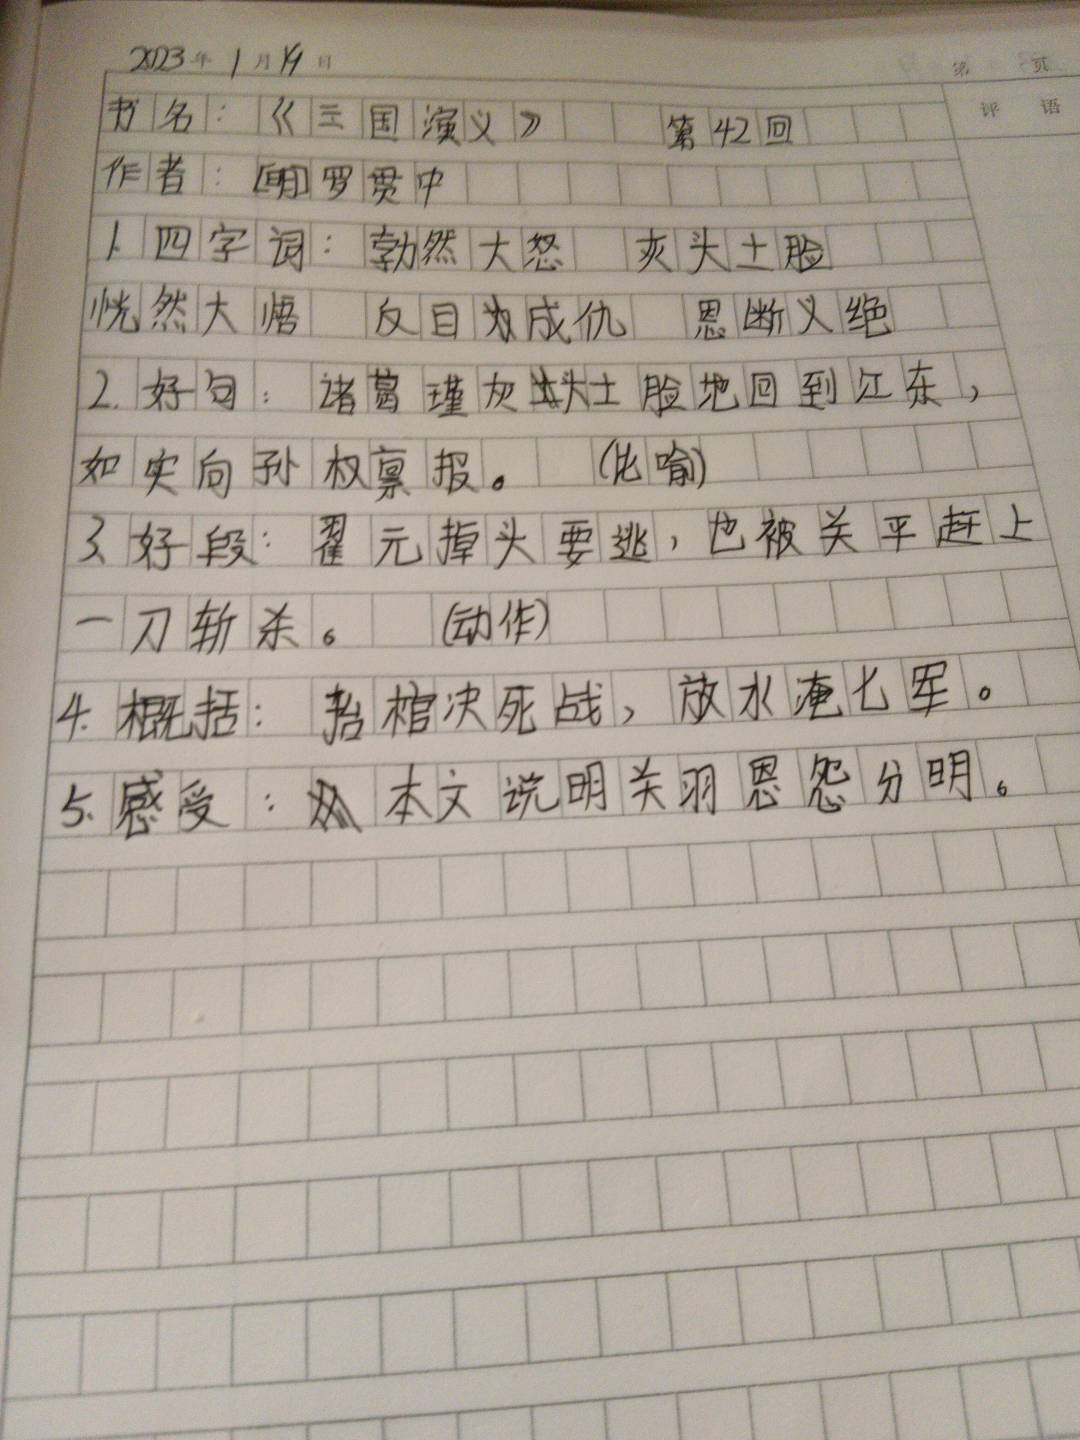 2023年1月19日
第 页
书名：《三国演义》 第42回
评 语
作者：[明]罗贯中
1. 四字词：勃然大怒 灰头土脸
恍然大悟 反目成仇 恩断义绝
2. 好句：诸葛瑾灰头土脸地回到江东，
如实向孙权禀报。 (比喻)
3. 好段：翟元掉头要逃，也被关平赶上
一刀斩杀。 (动作)
4. 概括：抬棺决死战，放水淹七军。
5. 感受：本文说明关羽恩怨分明。